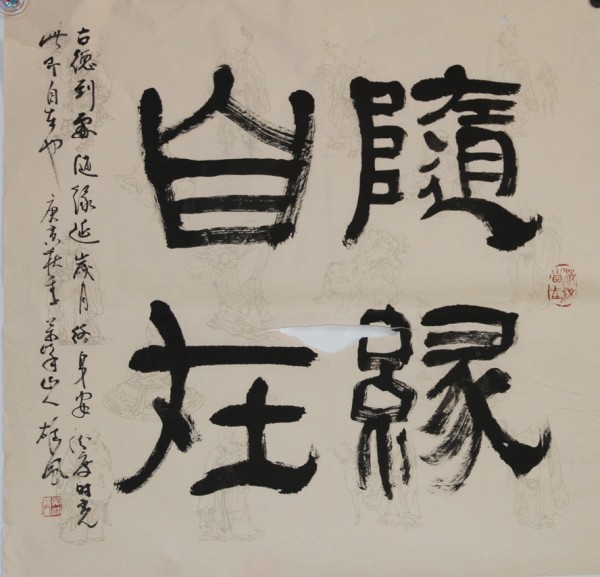 隨緣
自在
古德到處隨緣延歲月終身安分度時光
此即自在也 庚寅秋月 山人